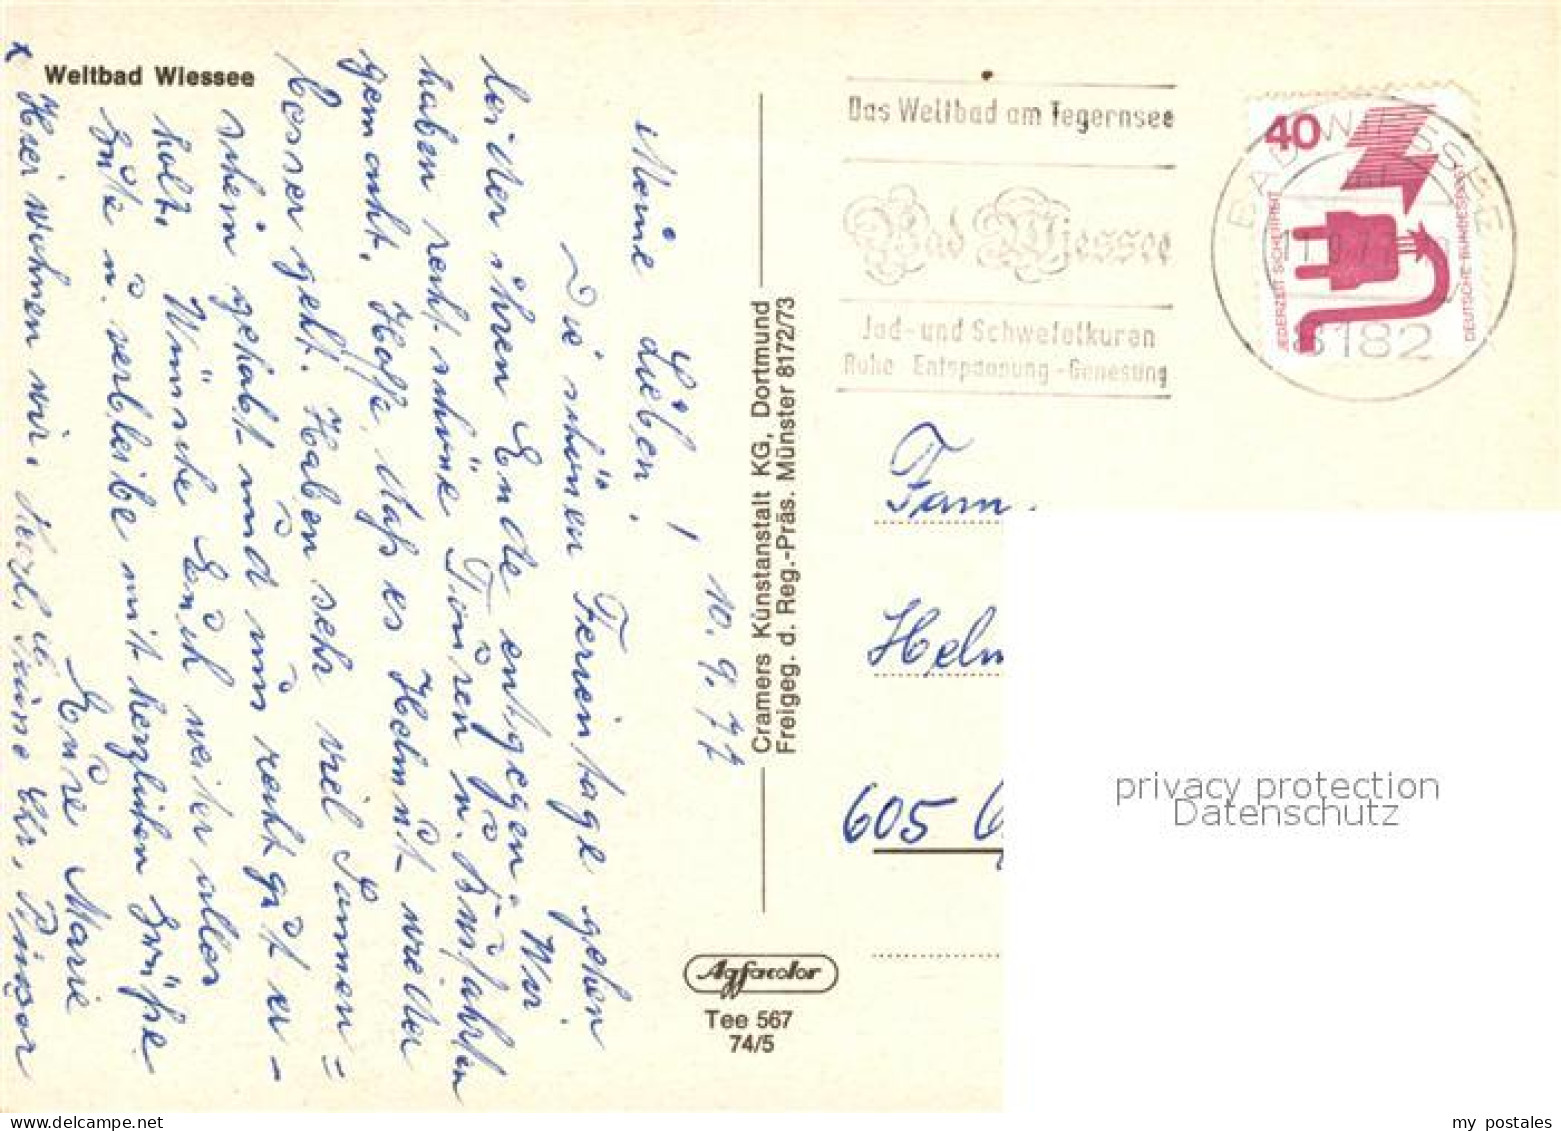 Weltbad Wiessee
10. 9. 77
Meine Lieben!
Die schönen Ferientage gehen
leider ihren Ende entgegen. Wir
haben recht schöne Touren u. Fussfahrten
gemacht. Hoffe, daß es Helmut wieder
besser geht. Haben sehr viel Sonnen=
schein gehabt und uns recht gut er-
holt. Wünsche Euch weiter alles
Gute u. verbleibe mit herzlichen Grüße
Eure Marie
Hier wohnen wir.
Cramers Kunstanstalt KG, Dortmund
Freigeg. d. Reg.-Präs. Münster 8172/73
Agfacolor
Tee 567
74/5
Das Weltbad am Tegernsee
Bad Wiessee
Jod- und Schwefelkuren
Ruhe - Entspannung - Genesung
40
JEDERZEIT SICHERHEIT
DEUTSCHE BUNDESPOST
BAD WIESSEE
8182
Fam.
Helm
605
privacy protection
Datenschutz
my postales